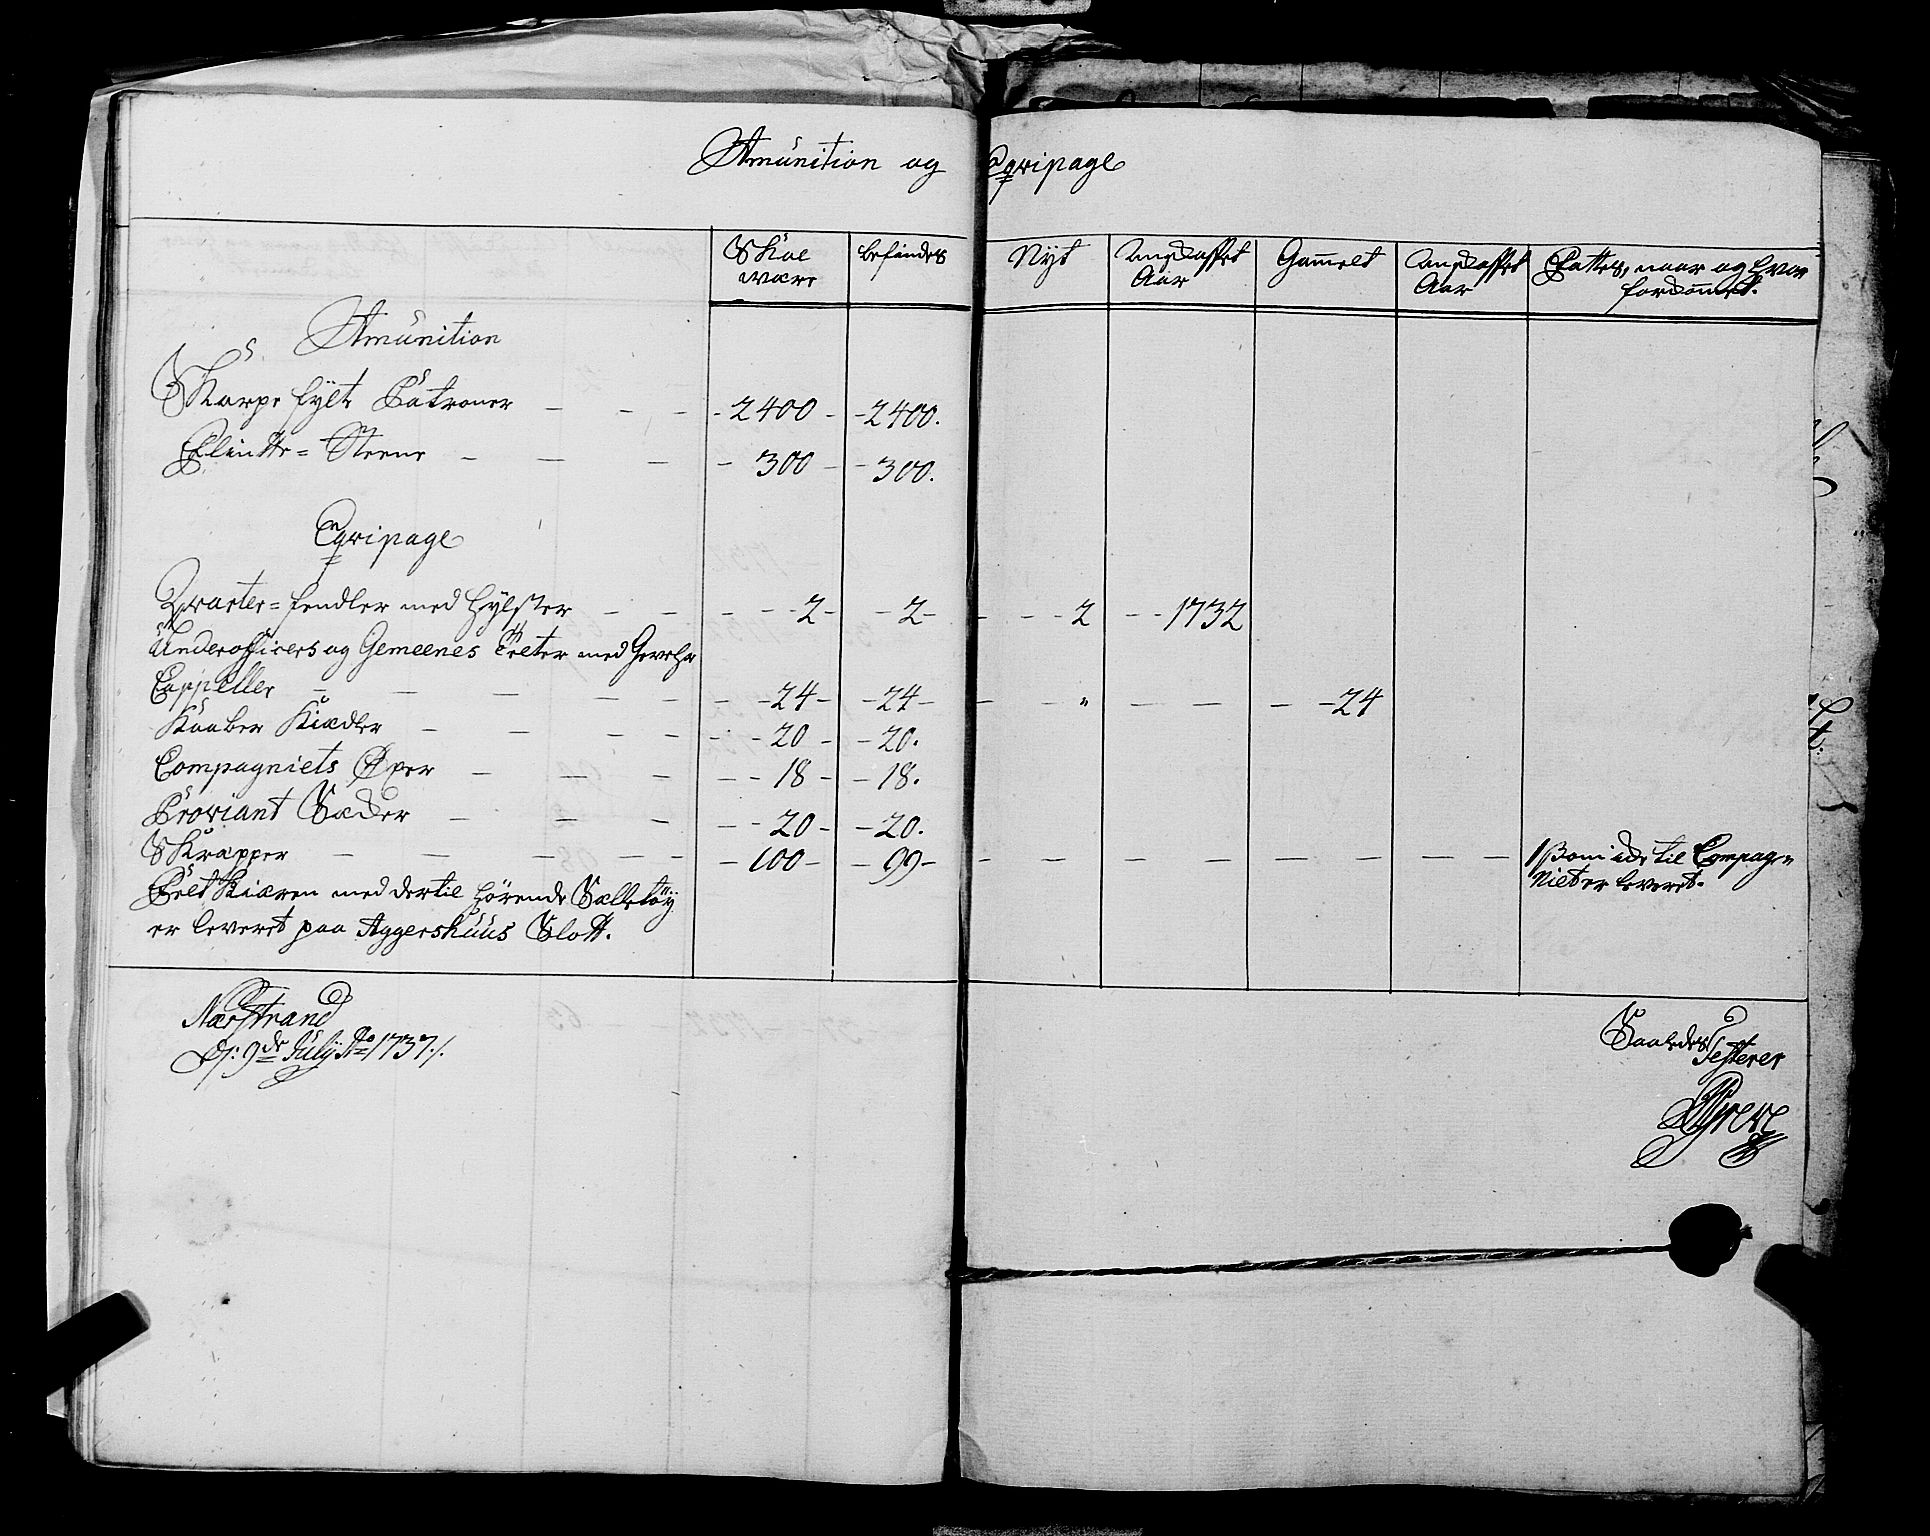 Amunition og Eqvipage
Skal være
befindes
Nyt
Anskaffet Aar
Gammelt
Anskaffet Aar
Fattes, naar og hvor forkommet.
Amunition
Skarpe fylte Patroner - - - 2400 - 2400.
Flintte = Steene - - - 300 - 300.
Eqvipage
Qvarteer = fendler med Hylster - - - 2 - 2 - - 2 - - 1732
Underofficers og Gemeenes Telter med Gevehr
Cappeller - - - - 24 - 24 - - " - - - 24
Kaaber Kiædler - - - 20 - 20.
Compagniets Øxer - - - 18 - 18.
Proviant Sæcker - - - 20 - 20.
Skræpper - - - 100 - 99 - - - - - 1 som icke til Compag=
niet er leveret.
Felt Kiæren med dertil hørendeÆlletøÿ
er leveret paa Aggershuus Slott.
Nærstrand
D: 9de Julÿ Ao 1737 ./.
Saaledes Testerer